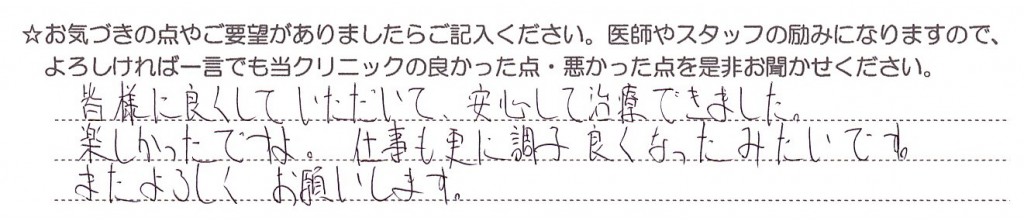 ☆お気づきの点やご要望がありましたらご記入ください。医師やスタッフの励みになりますので、
よろしければ一言でも当クリニックの良かった点・悪かった点を是非お聞かせください。
皆様に良くしていただいて、安心して治療できました。
楽しかったですね。仕事も更に調子良くなったみたいです。
またよろしくお願いします。